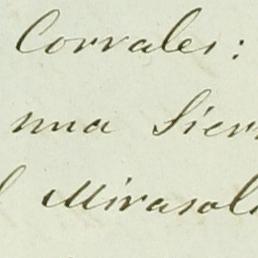 Corrales:
una Sierr
l Mirasol